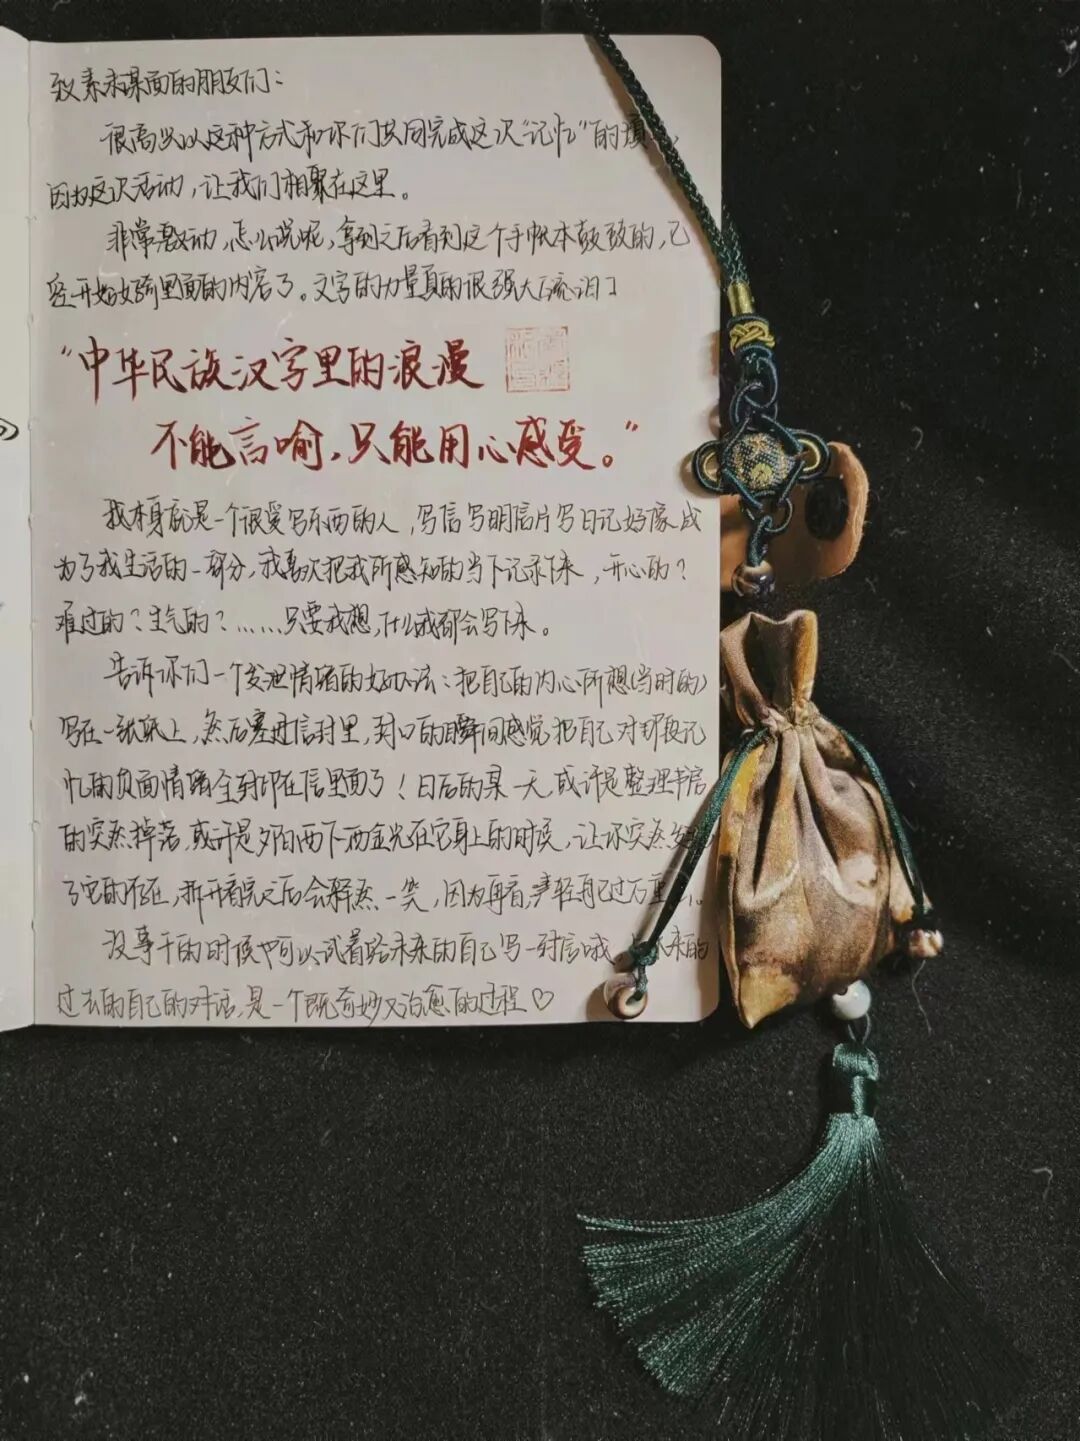 致素未谋面的朋友们：
很高兴以这种方式和你们共同完成这次“记忆”的填
因为这次活动，让我们相聚在这里。
非常激动，怎么说呢，拿到之后看到这个手帐本鼓鼓的，已
经开始好奇里面的内容了。文字的力量真的很强大[流泪]
“中华民族汉字里的浪漫
不能言喻，只能用心感受。”
我本身就是一个很爱写东西的人，写信写明信片写日记好像成
为了我生活的一部分，我喜欢把我所感知的当下记录下来，开心的？
难过的？生气的？……只要我想，什么我都会写下来。
告诉你们一个发泄情绪的好办法：把自己的内心所想(当时的)
写在一张纸上，然后塞进信封里，封口的瞬间感觉把自己对那段记
忆的负面情绪全封印在信里面了！日后的某一天，或许是整理书店
的突然掉落，或许是夕阳西下洒金光在它身上的时候，让你突然发
了它的存在，拆开看完之后会释然一笑，因为再看，声轻再已过万重
没事干的时候也可以试着给未来的自己写一封信哦 未来的
过去的自己的对话，是一个既奇妙又治愈的过程♡